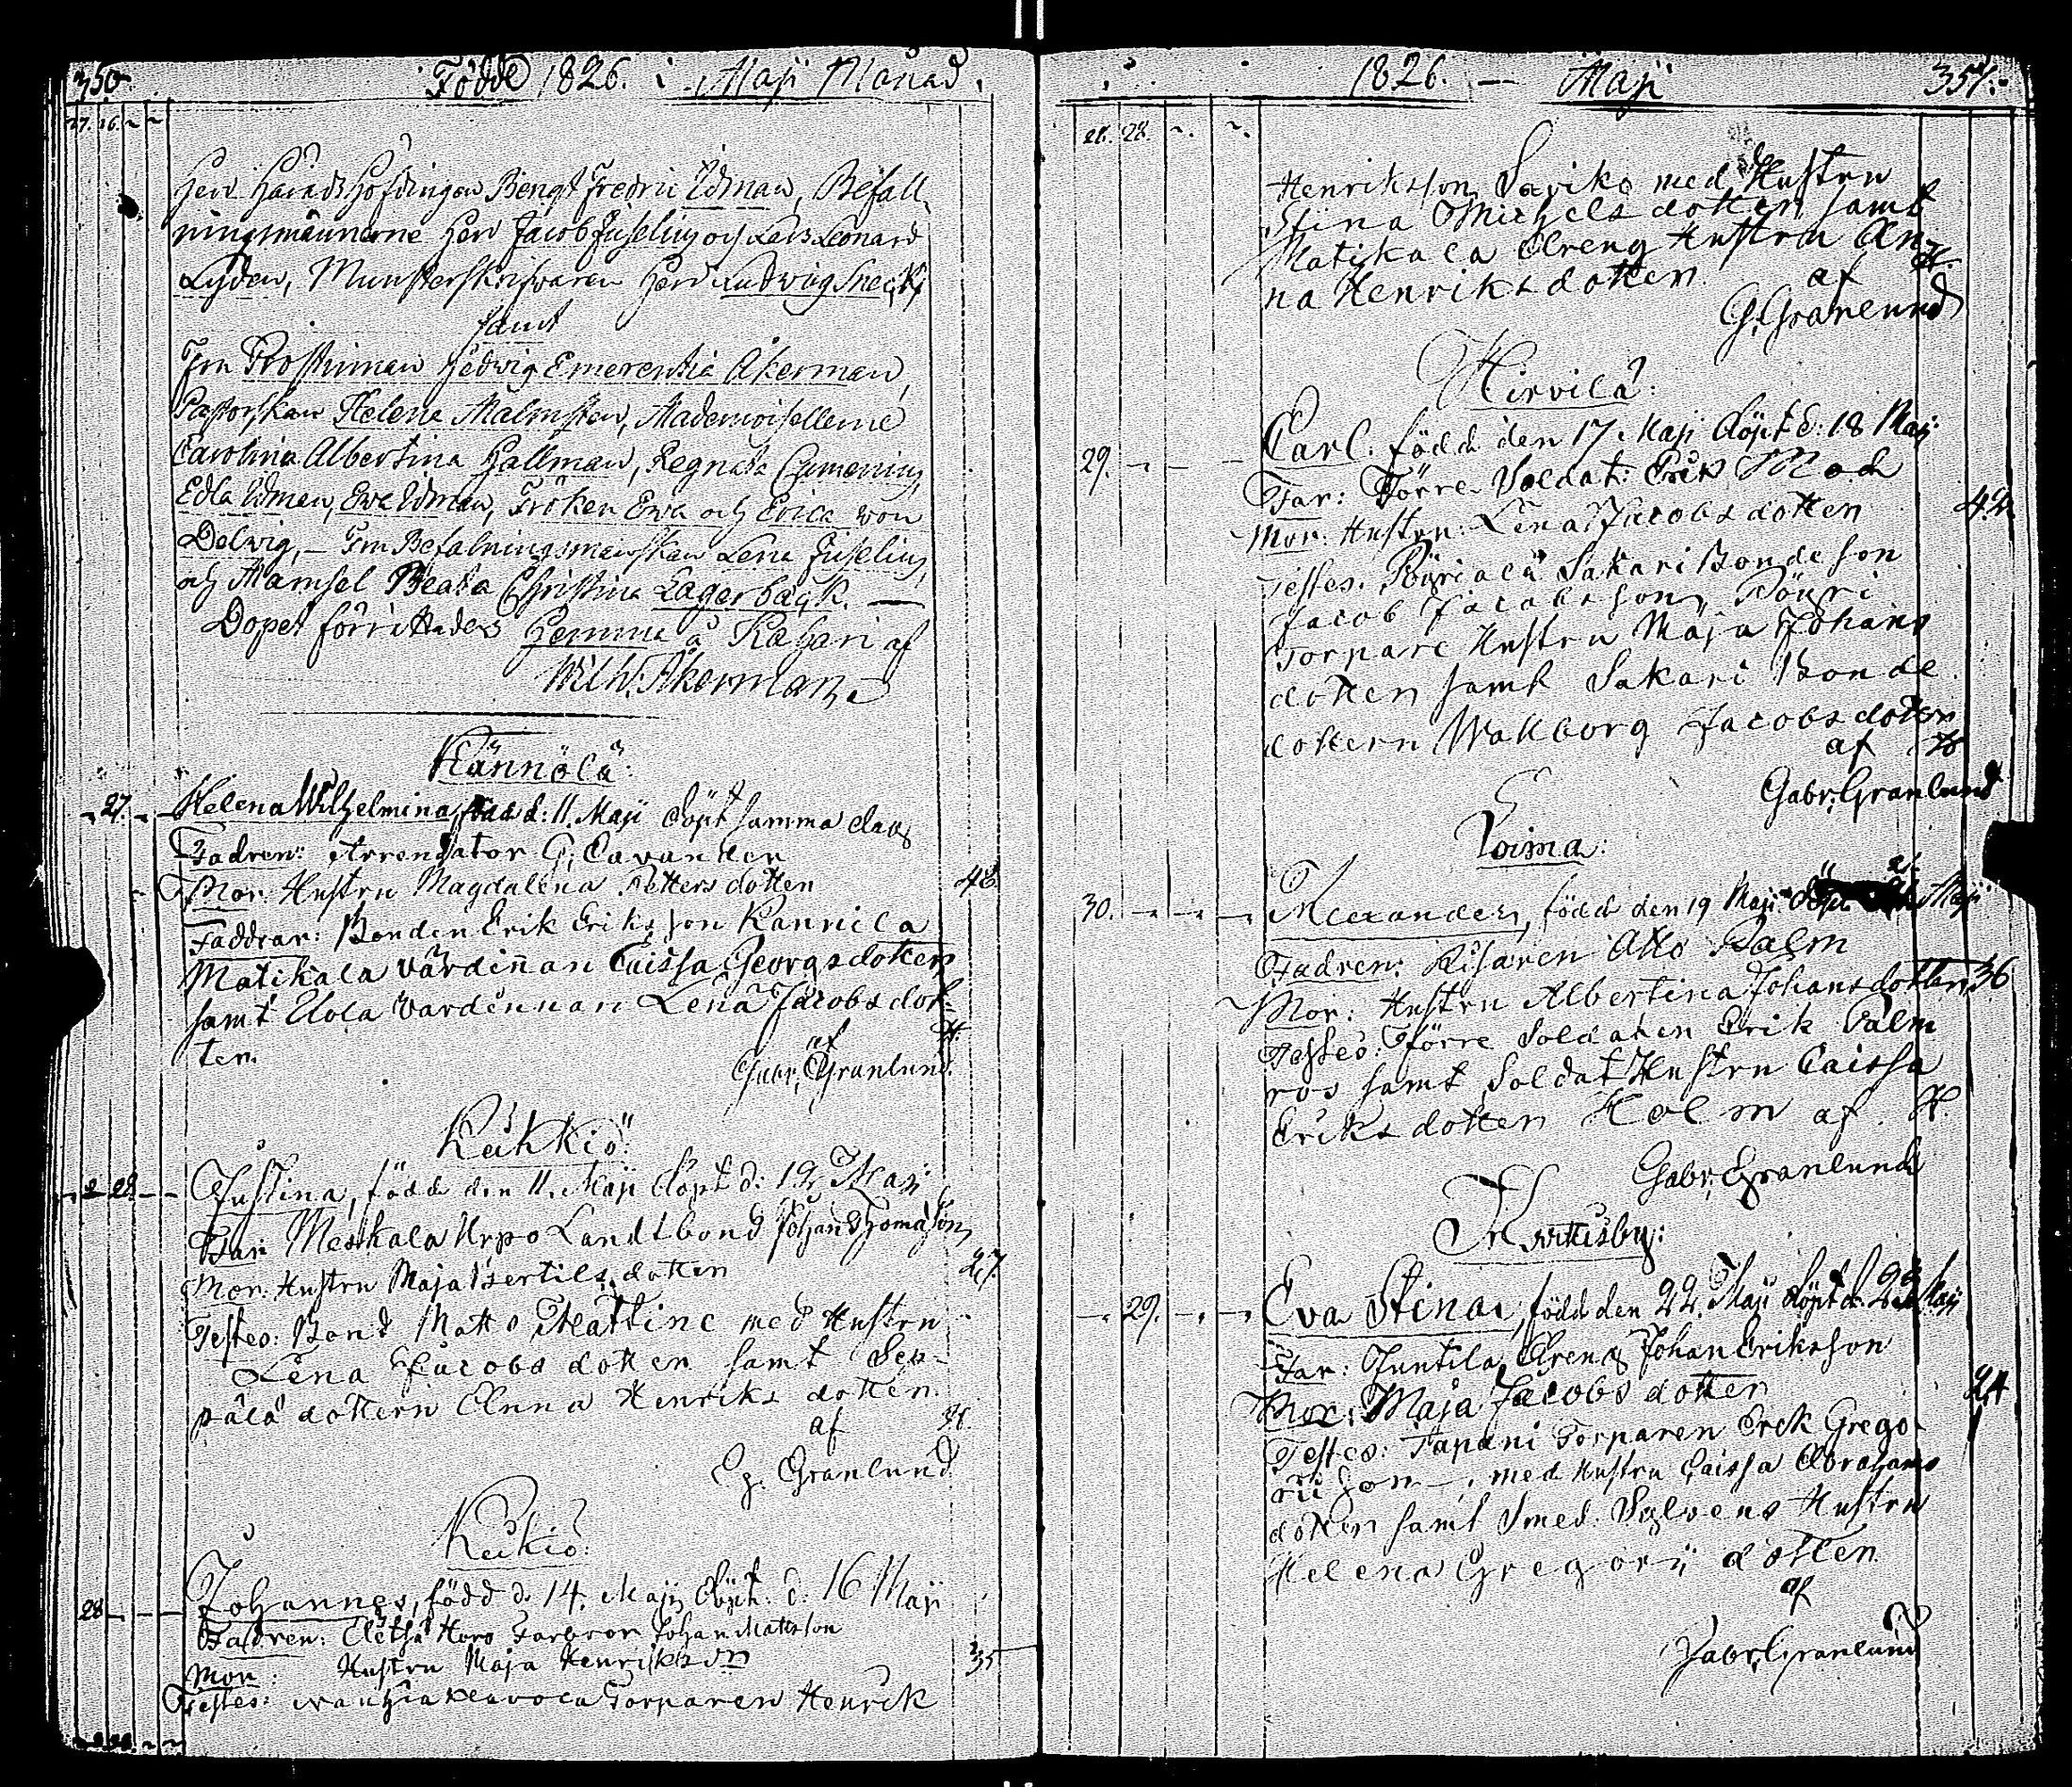 350.
Födde 1826. i Maji Månad.
27. 26. ~ ~
Herr Häradshöfdingen Bengt Fredric Idman, Befall-
ningsmännerne Herr Jacob Juselius och Lars Leonard
Lyden, Munsterskrifvaren Herr Ludwig Sneck,
samt
Fru Prostinnan Hedwig Emerentia Åkerman,
Pastorskan Helena Malmsten, Mademoisellerne
Carolina Albertina Hallman, Regnata
Edla Idman, Eva Idman, Fröken Ewa och Erica von
Delwig, – Fru Befalningsmanskan Lena Juselius,
och Mamsel Beata Christina Lagerbäck. —
Dopet förrittades Hemma å Kahari af
Wilh. Åkerman.
Kännölä:
27. Helena Wilhelmina, född d: 11. Maji döpt samma dag
Fadren: Arrendator G. Cavander
Mor: Hustru Magdalena Petters dotter 48.
Faddrar: Bonden Erik Eriksson Kannila
Matikala värdinnan Caissa Georgsdotter
samt Uola värdinnan Lena Jacobs dot-
ter. af H.
Gabr. Granlund.
Keihkiö:
28 Justina, född den 11. Maji döpt d: 12 Maji
Far: Meskala Urpo Landtbond Johan Thomasson
Mor: Hustru Maja Bertils dotter 27.
Testes: Bond Matts Mattinc med Hustru
Lena Jacobs dotter samt Sep-
pälä dottern Anna Henriks dotter.
af H.
G. Granlund.
Keikiö:
28 Johannes, född d. 14. Maji, döpt. d. 16 Maji
Fadren: Horo Farbror Johan Mattsson
Mor: Hustru Maja Henriksdotter 35
Testes: Torparen Henrik
1826. — Maji 351.
28. 28. ~. ~.
Henriksson Saviko med Hustru
Stina Michels dotter samt
Matikala dreng Hustru An-
na Henriks dotter. af H.
G. Granlund
Hirvilä:
29. Carl: född den 17. Maji döpt d: 18 Maj
Far: Förre Soldat: Erik Mod
Mor: Hustru: Lena Jacobs dotter 42
Testes: Sakari Bondeson
Jacob Jacobsson, Pöyri
Torpare Hustru Maja Johans
dotter samt Sakari Bonde
dottern Walborg Jacobsdotter
af H
Gabr. Granlund
Loima:
30. Alexander, född den 19 Maji döpt Maji
Fadren: Otto Palm
Mor: Hustru Albertina Johansdotter, 36
Testes: Förre Soldaten Erik Palm
ros samt Soldat Hustru Caissa
Eriks dotter Holm af H.
Gabr. Granlund
29. Eva Stina, född den 22. Maji döpt d. Maij
Far: Juntila dreng Johan Eriksson
Mor: Maja Jacobs dotter 24
Testes: Tapani Torparen Erik Grego-
rii son –, med Hustru Caissa Abrahams
dotter samt Smed. Sylvens Hustru
Helena Gregorii dotter.
af
Gabr. Granlund